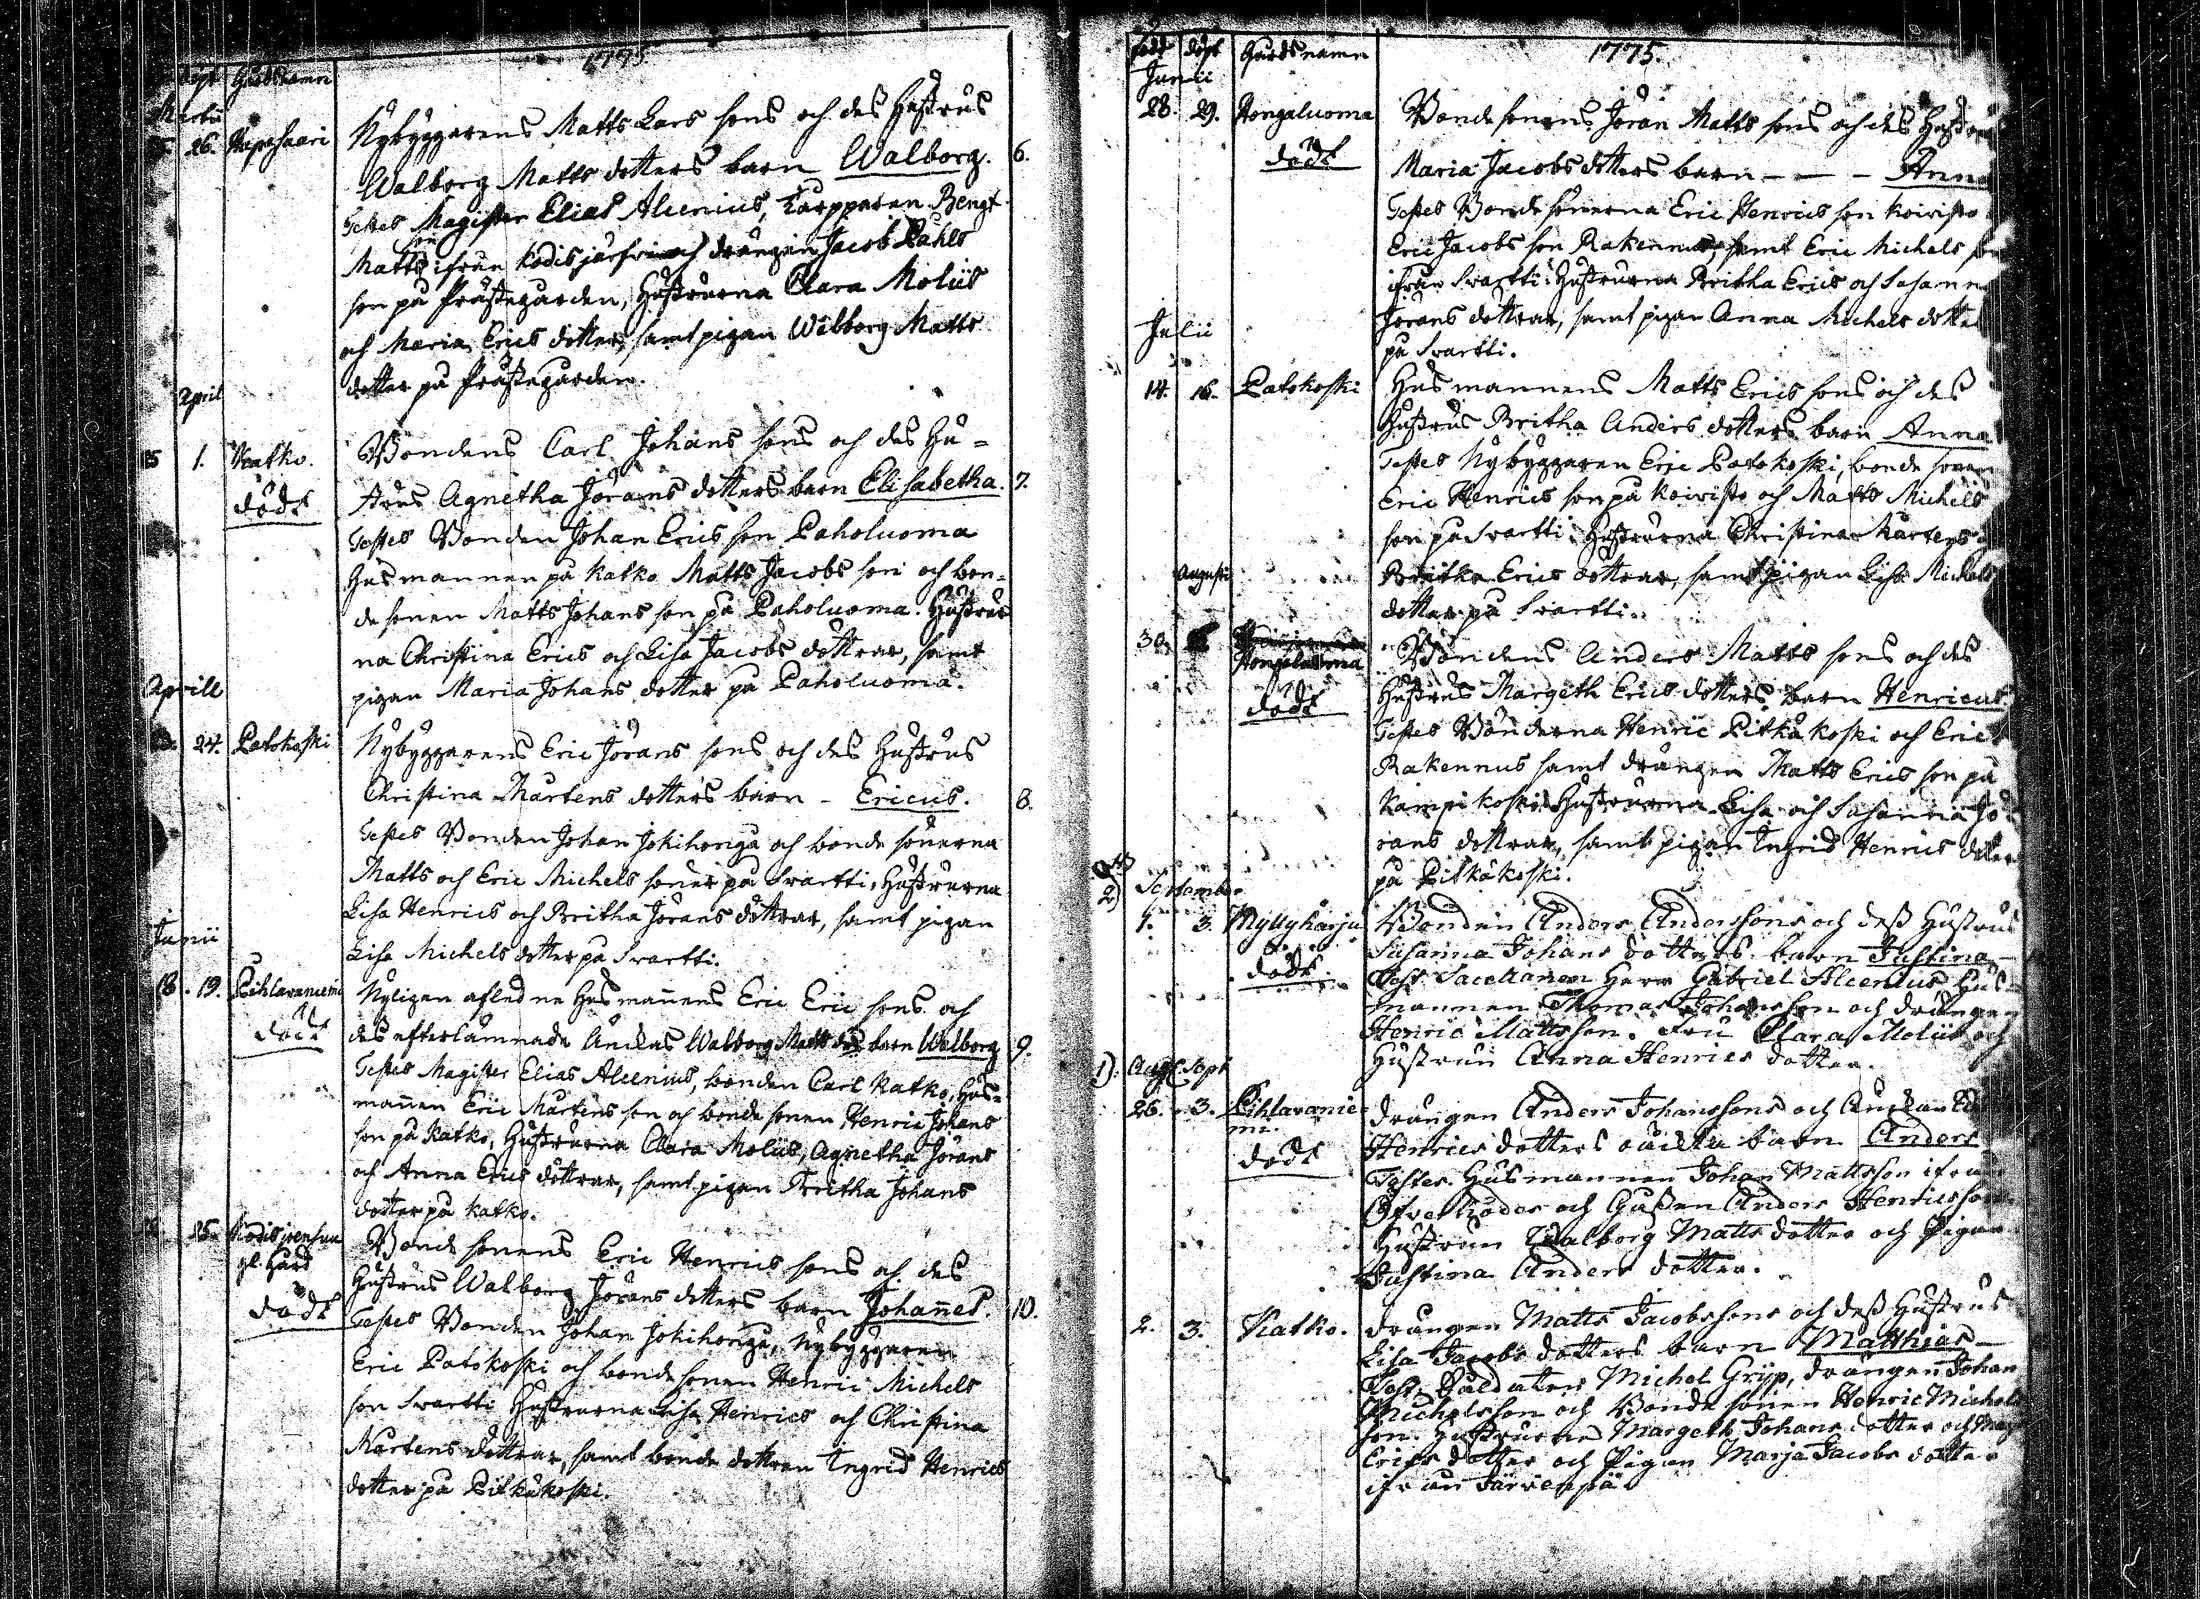 1775.
döpt Gårdsnamn
Martii
26. Haapasaari Nybyggarens Matts Lars sons och des Hustrus
Walborg Matts dotters barn Walborg. 6.
Testes Magister Elias Alcenius, Karpparen Bengt
Matts son ifrån Kodisjärfvi och drängen Jacob Påhls
son på Prästegården, Hustrurna Clara Moliis
och Maria Erics dotter, samt pigan Walborg Matts
dotter på Prästegården.
April
1. Katko. Bondens Carl Johans sons och des Hu=
dödt strus Agnetha Jörans dotters barn Elisabetha. 7.
Testes Bonden Johan Erics son Paholuoma
Husmannen på Katko Matts Jacobs son och bon=
de sonen Matts Johans son på Paholuoma. Hustrur
na Christina Erics och Lisa Jacobs döttrar, samt
pigan Maria Johans dotter på Paholuoma.
Aprill
24. Patokoski Nybyggarens Eric Jörans sons och des Hustrus
Christina Mårtens dotters barn - Ericus. 8.
Testes Bonden Johan Jokihonga och bonde sönerna
Matts och Eric Michels söner på Svartti, Hustrurna
Lisa Henrics och Britha Jörans döttrar, samt pigan
Lisa Michels dotter på Svartti.
Junii
18. 19. Pihlavaniemi Nyligen aflidne Husmannens Eric Eric sons och
dödt des efterlämnade Änckas Walborg Matts dots barn Walborg 9.
Testes Magister Elias Alcenius, bonden Carl Katko, Hus=
mannen Eric Mårtens son och bonde sonen Henric Johans
son på Katko, Hustrurna Clara Moliis, Agnetha Jörans
och Anna Erics döttrar, samt pigan Britha Johans
dotter på Katko.
25. Kodisjoensuu Bonde sonens Eric Henrics sons och des
gl. Gård Hustrus Walborg Jörans dotters barn Johannes. 10.
dödt Testes Bonden Johan Jokihonga, Nybyggaren
Eric Patokoski och bonde sonen Henric Michels
son Svartti Hustrurna Lisa Henrics och Christina
Mårtens döttrar, samt bonde dottren Ingrid Henrics
dotter på Pitkäkoski.
född döpt Gårdsnamn 1775.
Junii
28. 29. Hongaluoma Bonde sonens Jöran Matts sons och des Hustrus
dödt Maria Jacobs dotters barn - - - Anna
Testes Bonde sönerna Eric Henrics son Koivisto
Eric Jacobs son Rakennus, samt Eric Michels son
ifrån Svartti: Hustrurna Britha Erics och Susanna
Jörans döttrar, samt pigan Anna Michels dotter
på Svartti.
Julii
14. 16. Patokoski Husmannens Matts Erics sons och des
Hustrus Britha Anders dotters barn Anna
Testes Nybyggaren Eric Patokoski, bonde sonen
Eric Henrics son på Koivisto och Matts Michels
son på Svartti. Hustrurna Christina Mårtens
Britha Erics döttrar, samt pigan Lisa Michels
dotter på Svartti.
Augusti
30. Hongaluoma Bondens Anders Matts sons och des
dödt Hustrus Margeth Erics dotters barn Henricus
Testes Bönderna Henric Pitkäkoski och Eric
Rakennus samt drängen Matts Erics son på
Kampikoski, Hustrurna Lisa och Susanna Jö
rans döttrar, samt pigan Ingrid Henrics dotter
på Pitkäkoski.
2) September
1. 3. Myllyharju Bonden Anders Anderssons och deß Hustrus
dödt. Susanna Johans dotters barn Justina
Test. Sacellanen Herr Gabriel Alcenius, Hus=
mannen Thomas Johansson och drängen
Henric Mattsson. Fru Clara Moliis och
Hustrun Anna Henrics dotter.
1). Aug. Sept
26. 3. Pihlavanie= Drängen Anders Johanssons och
mi. Henrics dotters barn Anders
dödt Testes. Husmannen Johan Mattsson ifrån
och Anders Henricsson
Hustrun Walborg Matts dotter och Pigan
Justina Anders dotter.
2. 3. Katko. Drängen Matts Jacobssons och deß Hustrus
Lisa Jacobs dotters barn Matthias
Test. Soldaten Michel Gryp, drängen Johan
Michelsson och Bonde sonen Henric Michels
son. Hustrurna Margeth Johans dotter och
Erics dotter och Pigan Marja Jacobs dotter
ifrån Järvenpää